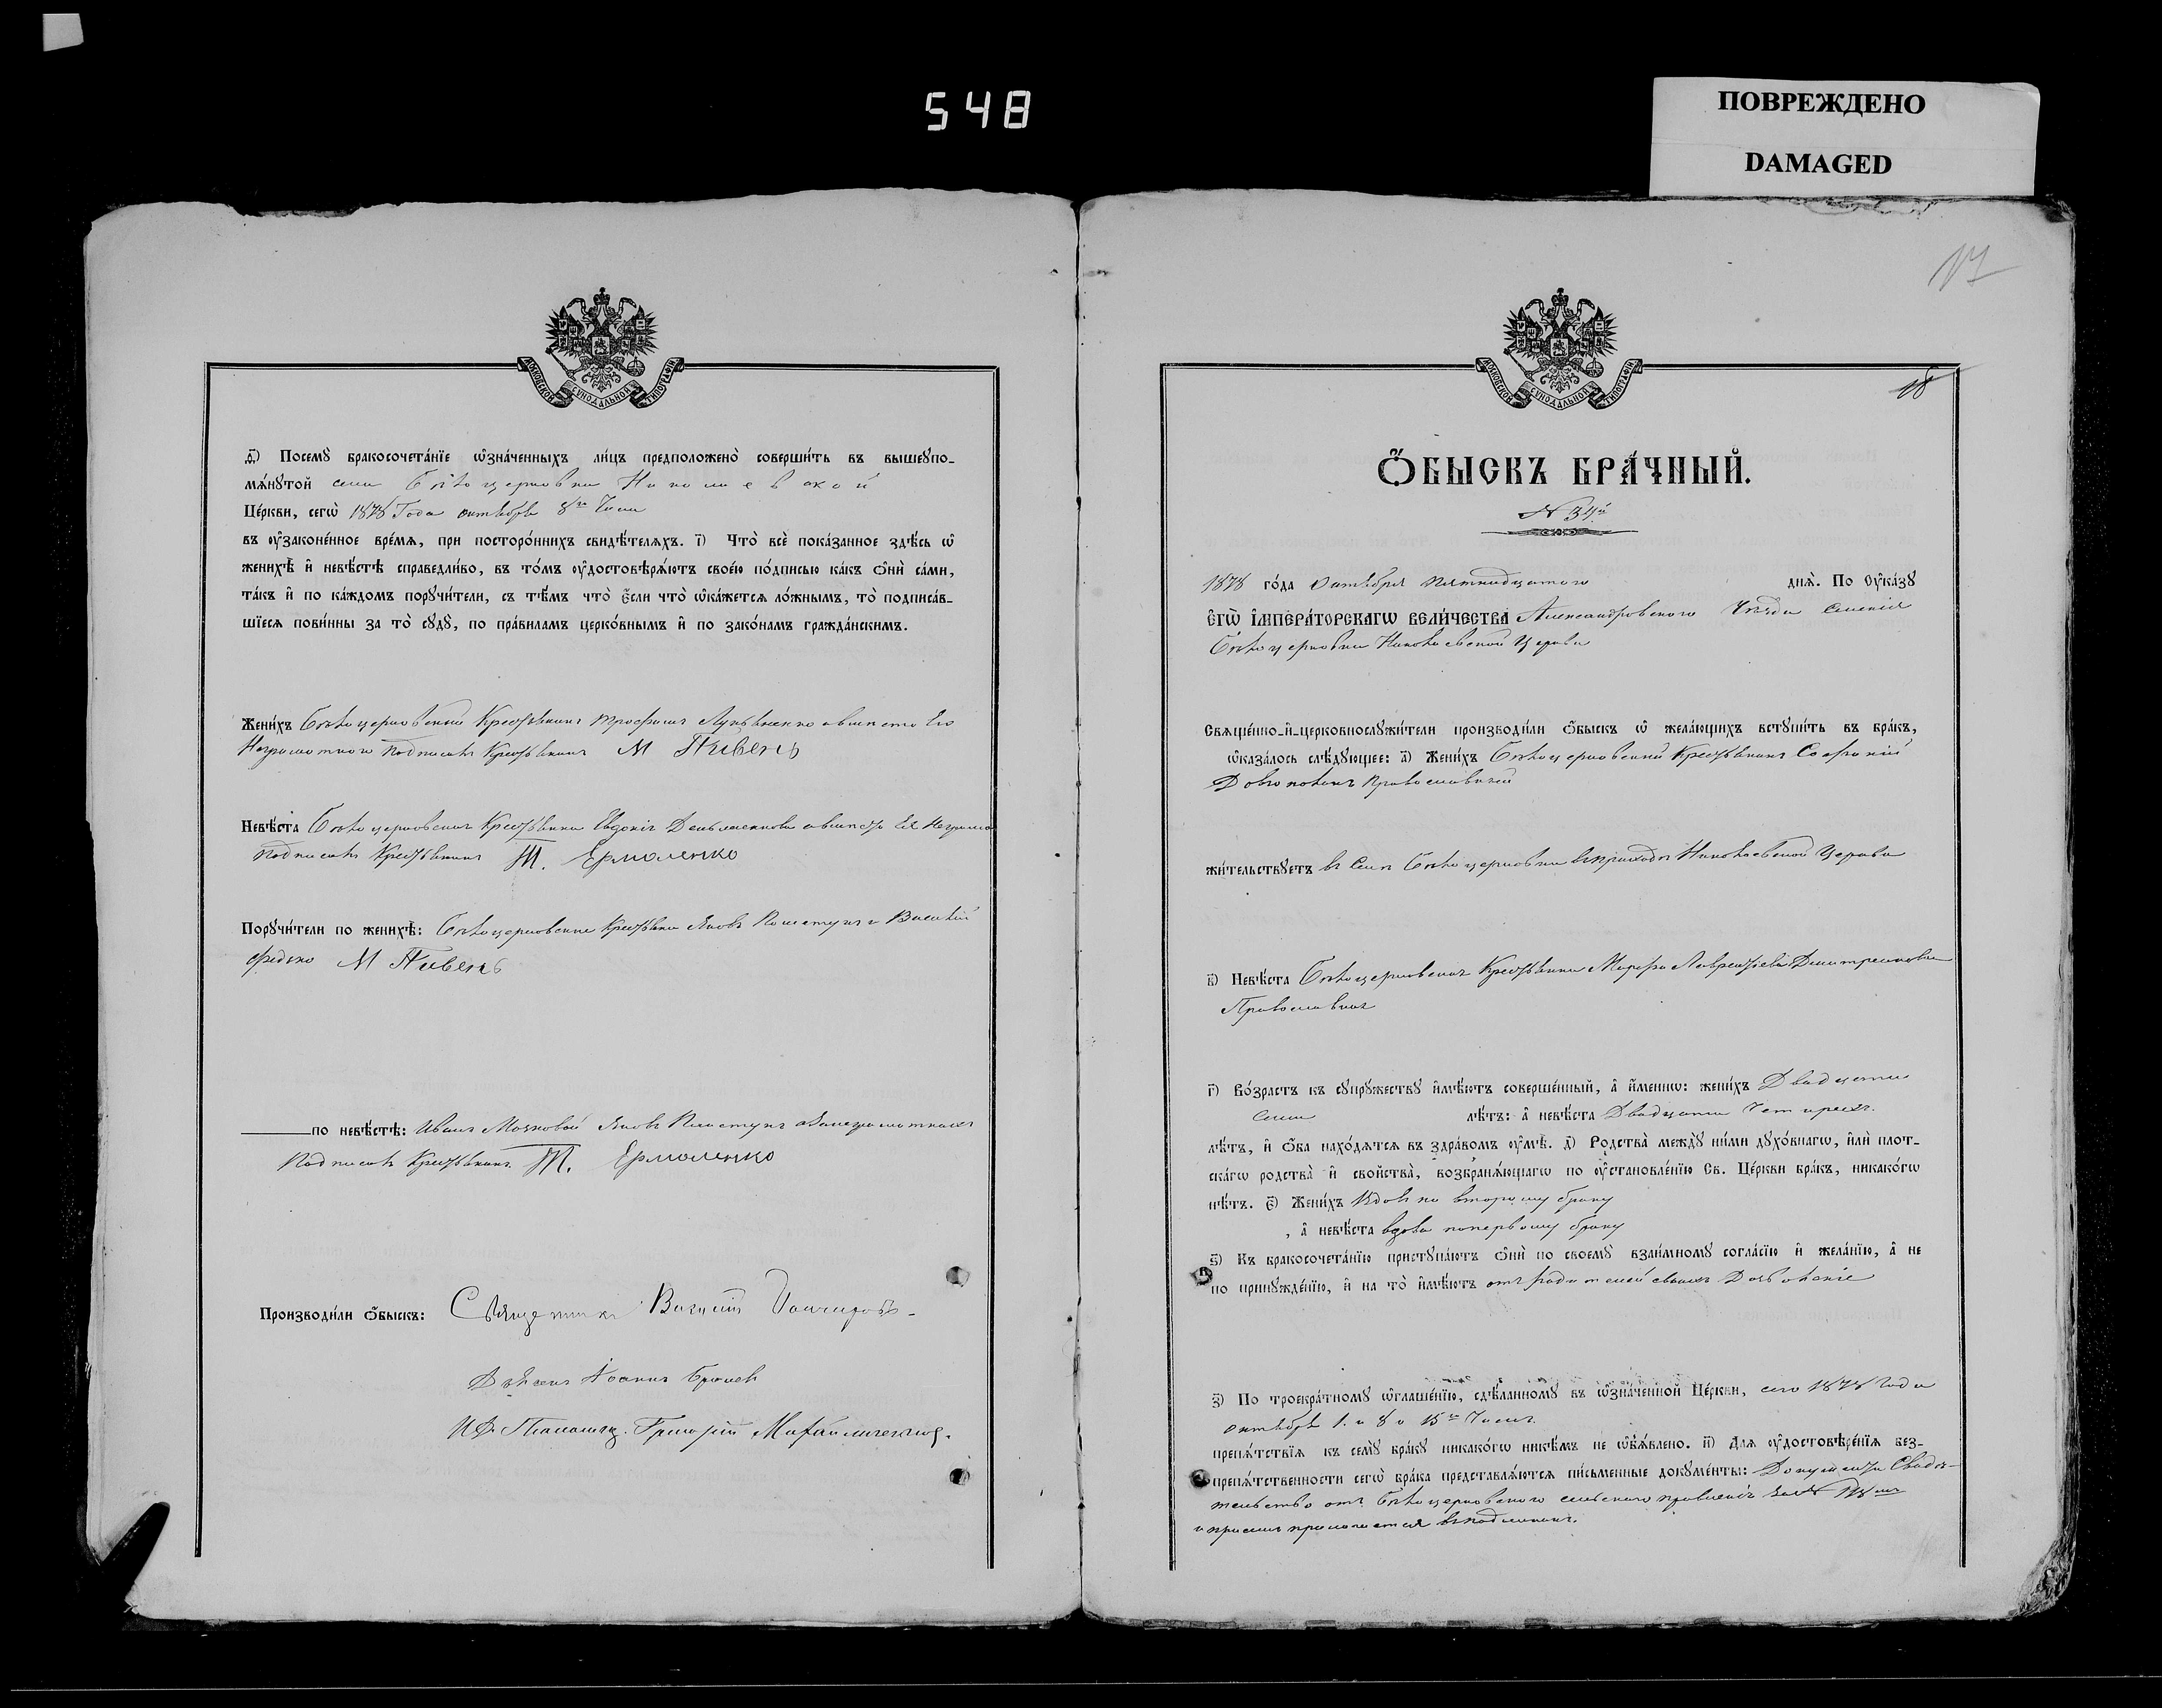 548
ПОВРЕЖДЕНО
DAMAGED
МОСКОВСКОЙ СѴНОДАЛЬНОЙ ТИПОГРАФІИ
ѳ҃) Посемꙋ̀ бракосочета́нїе ѡ҆зна́ченныхъ ли́цъ предположено̀ соверши́ть въ вышеꙋпо-
мѧ́нꙋтой села Бѣлоцерковки Николаевской
Це́ркви, сегѡ̀ 1878 Года октября 8го Числа
въ ᲂу҆зако́ненное вре́мѧ, при посторо́ннихъ свидѣ́телѧхъ. і҃) Что̀ всѐ пока́занное здѣ́сь ѡ҆
женихѣ̀ и҆ невѣ́стѣ справедли́во, въ то́мъ ᲂу҆достовѣрѧ́ютъ свое́ю по́дписью ка́къ ѻ҆нѝ са́ми,
та́къ и҆ по ка́ждомъ порꙋчи́тели, съ тѣ́мъ что̀ є҆́сли что̀ ѡ҆ка́жетсѧ ло́жнымъ, то̀ подписа́в-
шїесѧ пови́нны за то̀ сꙋдꙋ̀, по пра́виламъ церко́внымъ и҆ по зако́намъ гражда́нскимъ.
Жени́хъ Бѣлоцерковский Крестьянин Трофим Лукьяненко а вместо Его
Неграмотного подписал Крестьянин М Пивень
Невѣ́ста Бѣлоцерковская Крестьянка Евдокия а вместо Ея Неграмо
подписалъ Крестьянин Т. Ермоленко
Порꙋчи́тели по женихѣ̀: Бѣлоцерковские Крестьяне Яковъ и Василий
М Пивень
по невѣ́стѣ: Иванъ Яковъ
Подписалъ Крестьянин Т. Ермоленко
Производи́ли ѻ҆́быскъ: Священникъ Василий
Іоаннъ
И.Д. Григорий
17
18
Ѻ҆́БЫСКЪ БРА́ЧНЫЙ.
№ 34й
1878 го́да Октября пятнадцатого днѧ̀. По ᲂу҆ка́зꙋ
Є҆ГѠ̀ І҆МПЕРА́ТОРСКАГѠ ВЕЛИ́ЧЕСТВА Александровского Уезда Селения
Бѣлоцерковки Николаевской Церкви
Свѧще́нно-и҆-церковнослꙋжи́тели производи́ли ѻ҆́быскъ ѡ҆ жела́ющихъ встꙋпи́ть въ бра́къ,
ѡ҆каза́лось слѣ́дꙋющее: а҃) Жени́хъ Бѣлоцерковский Крестьянин Софроний
Довгополъ Православный
жи́тельствꙋетъ в Селе Бѣлоцерковки в приходе Николаевской Церкви
в҃) Невѣ́ста Бѣлоцерковская Крестьянка Марфа Лаврентіева Дмитренкова
Православная
г҃) Во́зрастъ къ сꙋпрꙋ́жествꙋ и҆мѣ́ютъ соверше́нный, а҆ и҆́меннѡ: жени́хъ Двадцати
семи лѣ́тъ: а҆ невѣ́ста Двадцати Четырех
лѣ́тъ, и҆ ѻ҆́ба нахо́дѧтсѧ въ здра́вомъ ᲂу҆мѣ̀. д҃) Родства̀ междꙋ̀ ни́ми дꙋхо́внагѡ, и҆лѝ плот-
ска́гѡ родства̀ и҆ сво́йства̀, возбранѧ́ющагѡ по ᲂу҆становле́нїю Св. Це́ркви бра́къ, никако́гѡ
нѣ́тъ. є҃) Жени́хъ Вдов по второму браку
, а҆ невѣ́ста вдова по первому браку
ѕ҃) Къ бракосочета́нїю пристꙋпа́ютъ ѻ҆нѝ по своемꙋ̀ взаи́мномꙋ согла́сїю и҆ жела́нїю, а҆ не
по принꙋжде́нїю, и҆ на то̀ и҆мѣ́ютъ отъ родителей своих Дозволение
з҃) По троекра́тномꙋ ѡ҆глаше́нїю, сдѣ́ланномꙋ въ ѡ҆зна́ченной Це́ркви, сего 1878 Года
октября 1. и 8 и 15го Числа
препѧ́тствїѧ къ семꙋ̀ бра́кꙋ никако́гѡ никѣ́мъ не ѡ҆б̾ѧ́влено. и҃) Длѧ ᲂу҆достовѣре́нїѧ без-
препѧ́тственности сегѡ̀ бра́ка представлѧ́ютсѧ пи́сьменные докꙋме́нты: Документы Свиде-
тельство отъ Бѣлоцерковского сельского правления за №
и при семъ прилагается в подлинник.